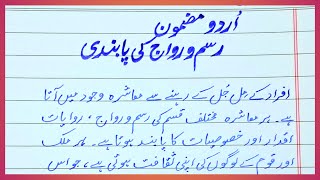 اُردو مضمون
رسم و رواج کی پابندی
افراد کے مِل جُل کے رہنے سے معاشرہ وجود میں آتا
ہے۔ ہر معاشرہ مختلف قسم کی رسم و رواج ، روایات
اقدار اور خصوصیات کا پابند ہوتا ہے۔ ہر ملک
اور قوم کے لوگوں کی اپنی ثقافت ہوتی ہے ، جو اس